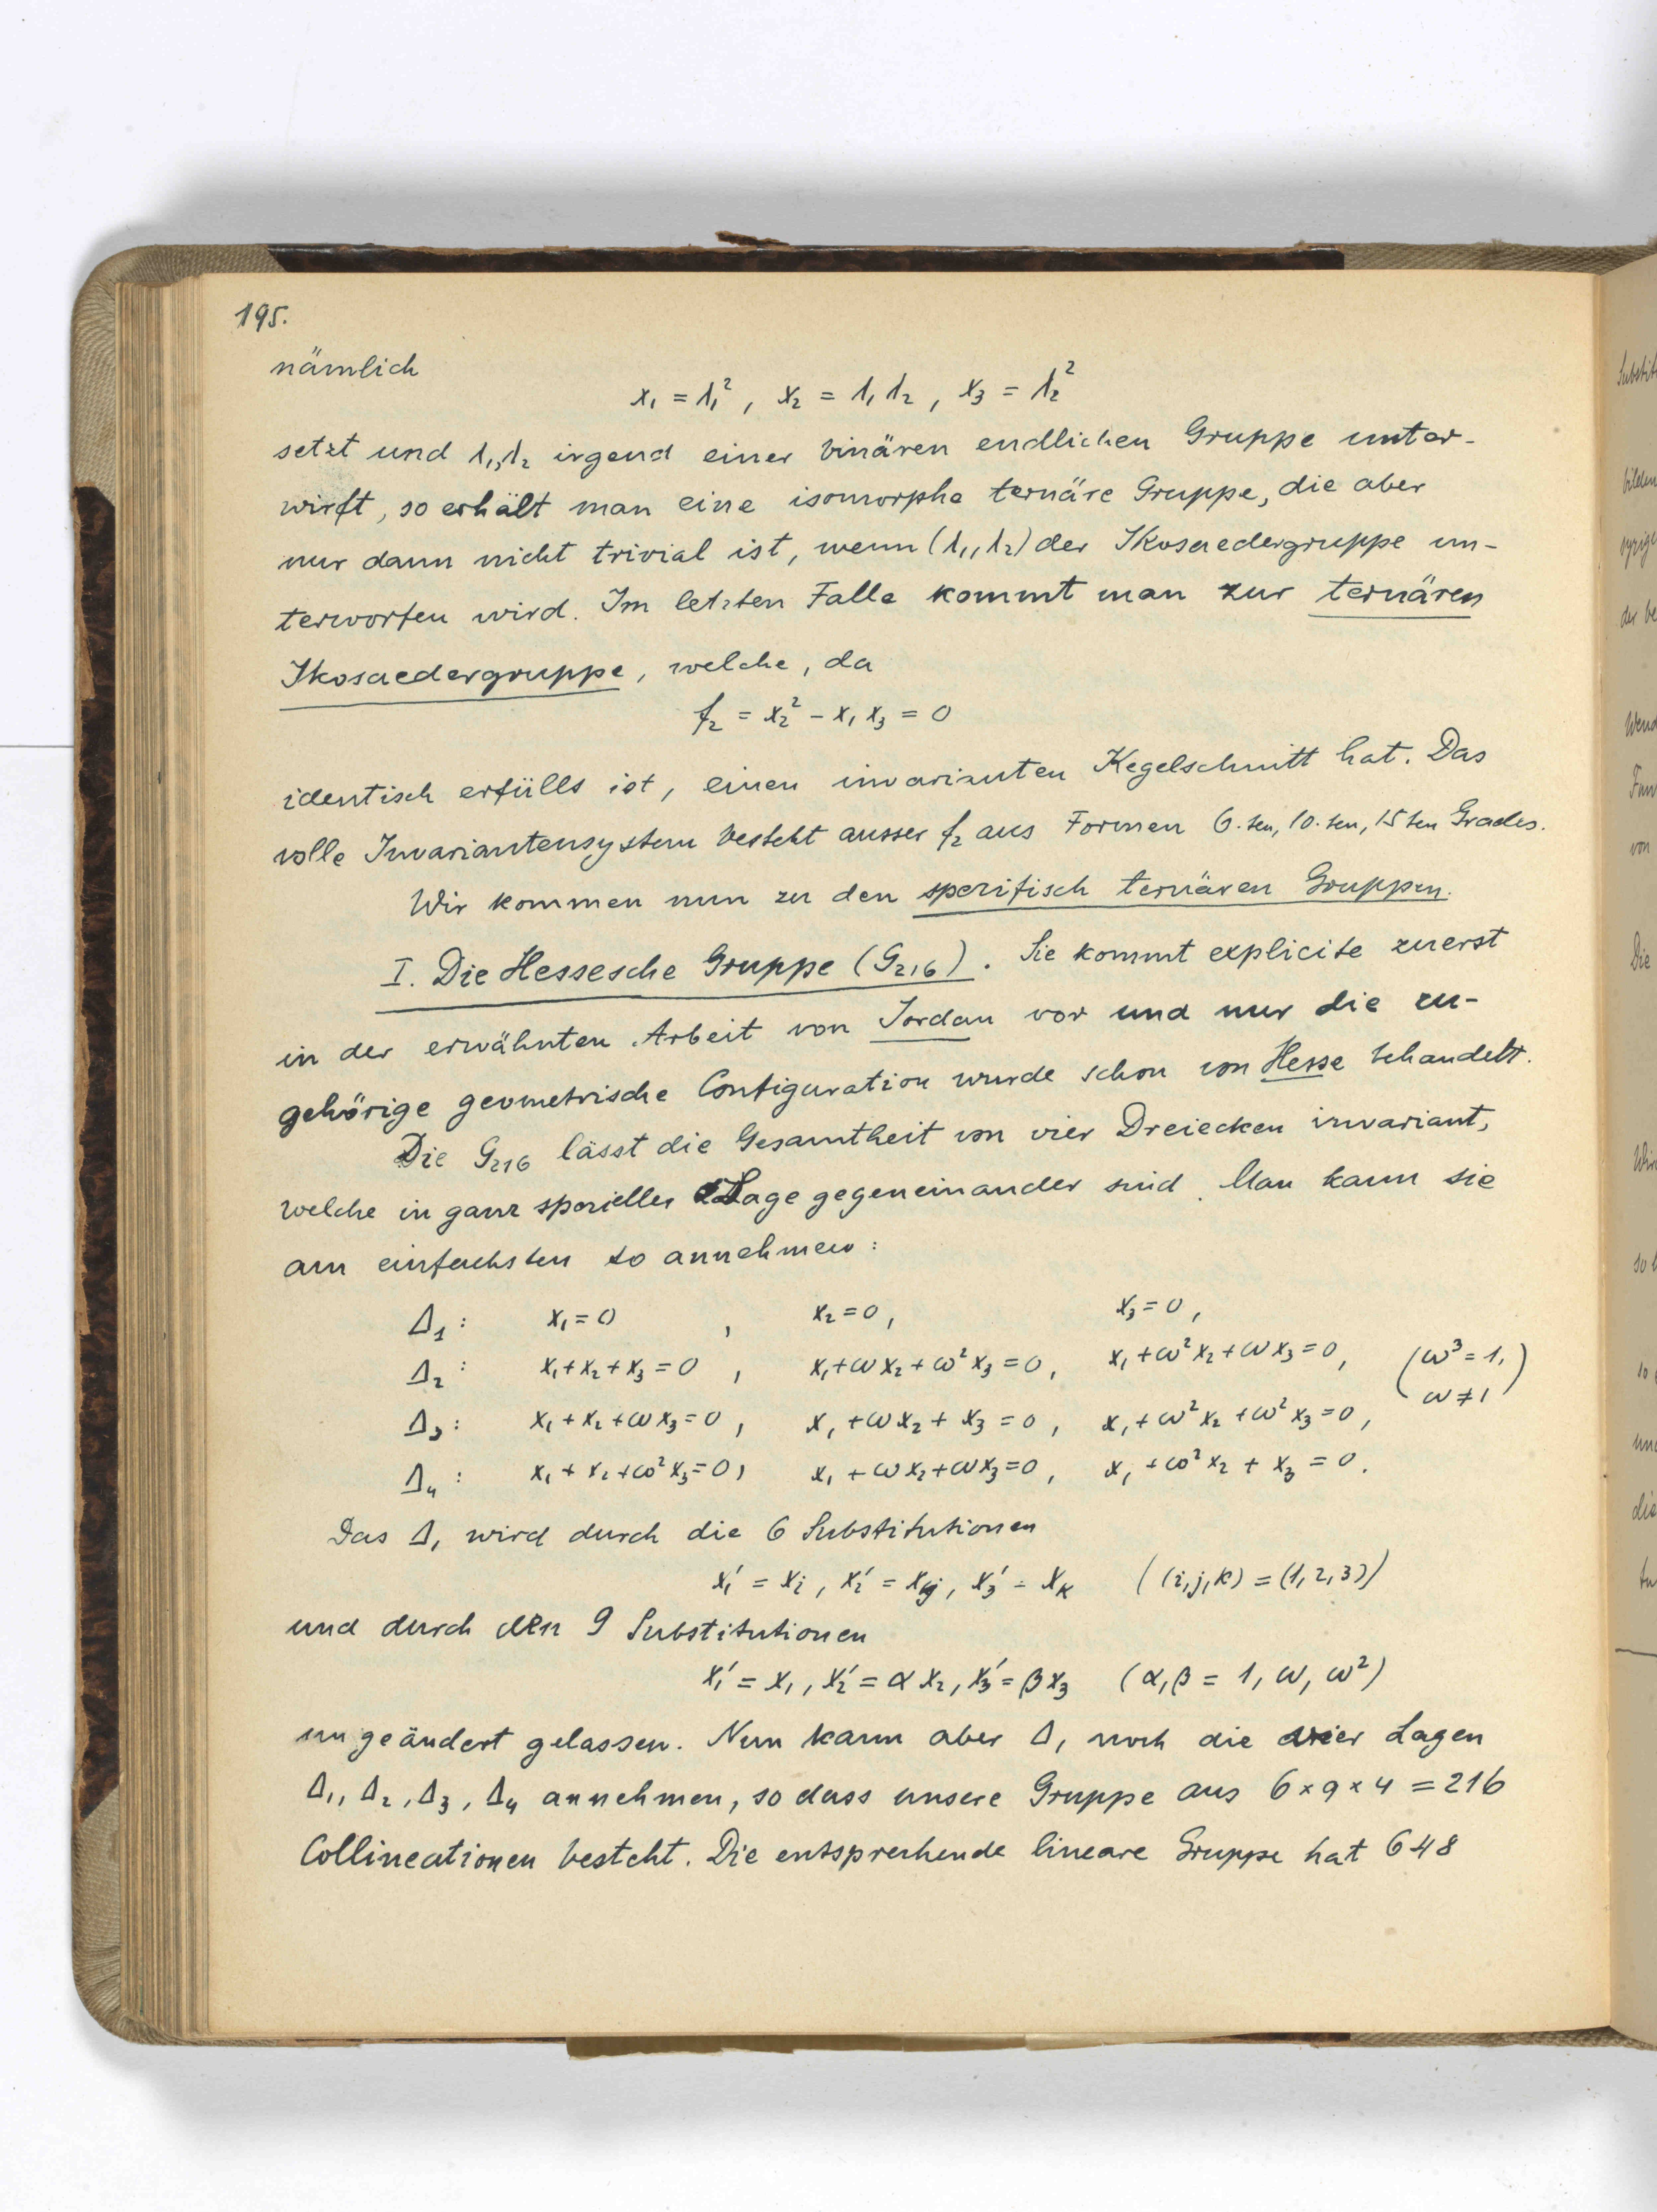 195.
nämlich
x₁ = λ₁², x₂ = λ₁λ₂, x₃ = λ₂²
setzt und λ₁, λ₂ irgend einer binären endlichen Gruppe unter-
wirft, so erhält man eine isomorphe ternäre Gruppe, die aber
nur dann nicht trivial ist, wenn (λ₁, λ₂) der Ikosaedergruppe un-
terworfen wird. Im letzten Falle kommt man zur ternären
Ikosaedergruppe, welche, da
f₂ = x₂² – x₁x₃ = 0
identisch erfüllt ist, einen invarianten Kegelschnitt hat. Das
volle Invariantensystem besteht ausser f₂ aus Formen 6.ten, 10.ten, 15ten Grades.
Wir kommen nun zu den spezifisch ternären Gruppen.
I. Die Hessesche Gruppe (G₂₁₆). Sie kommt explicite zuerst
in der erwähnten Arbeit von Jordan vor und nur die zu-
gehörige geometrische Configuration wurde schon von Hesse behandelt.
Die G₂₁₆ lässt die Gesamtheit von vier Dreiecken invariant,
welche in ganz spezieller Lage gegeneinander sind. Man kann sie
am einfachsten so annehmen:
Δ₁: x₁ = 0, x₂ = 0, x₃ = 0,
Δ₂: x₁ + x₂ + x₃ = 0, x₁ + ωx₂ + ω²x₃ = 0, x₁ + ω²x₂ + ωx₃ = 0, (ω³ = 1, ω ≠ 1)
Δ₃: x₁ + x₂ + ωx₃ = 0, x₁ + ωx₂ + x₃ = 0, x₁ + ω²x₂ + ω²x₃ = 0,
Δ₄: x₁ + x₂ + ω²x₃ = 0, x₁ + ωx₂ + ωx₃ = 0, x₁ + ω²x₂ + x₃ = 0.
Das Δ₁ wird durch die 6 Substitutionen
x₁' = xᵢ, x₂' = xⱼ, x₃' = xₖ ((i,j,k) = (1,2,3))
und durch den 9 Substitutionen
x₁' = x₁, x₂' = αx₂, x₃' = βx₃ (α, β = 1, ω, ω²)
ungeändert gelassen. Nun kann aber Δ₁ noch die vier Lagen
Δ₁, Δ₂, Δ₃, Δ₄ annehmen, so dass unsere Gruppe aus 6 × 9 × 4 = 216
Collineationen besteht. Die entsprechende lineare Gruppe hat 648